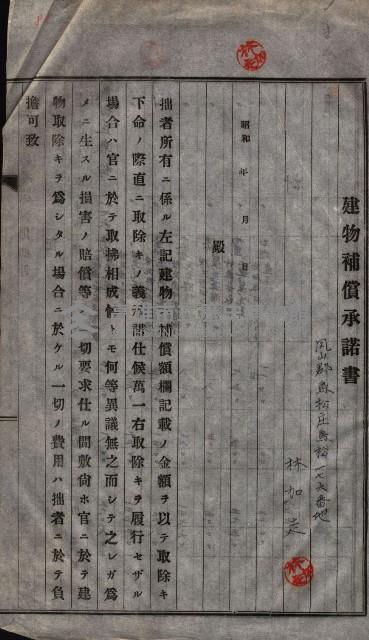 建物補償承諾書
鳳山郡鳥松庄鳥松一七六番地
林加
昭和 年 月 日
殿
拙者所有ニ係ル左記建物補償額欄記載ノ金額ヲ以テ取除キ
下命ノ際直ニ取除キノ義承諾仕候萬一右取除キヲ履行セザル
場合ハ官ニ於テ取拂相成候トモ何等異議無之而シテ之レガ爲
メニ生スル損害ノ賠償等一切要求仕ル間敷尚ホ官ニ於テ建
物取除キヲ爲シタル場合ニ於ケル一切ノ費用ハ拙者ニ於テ負
擔可致